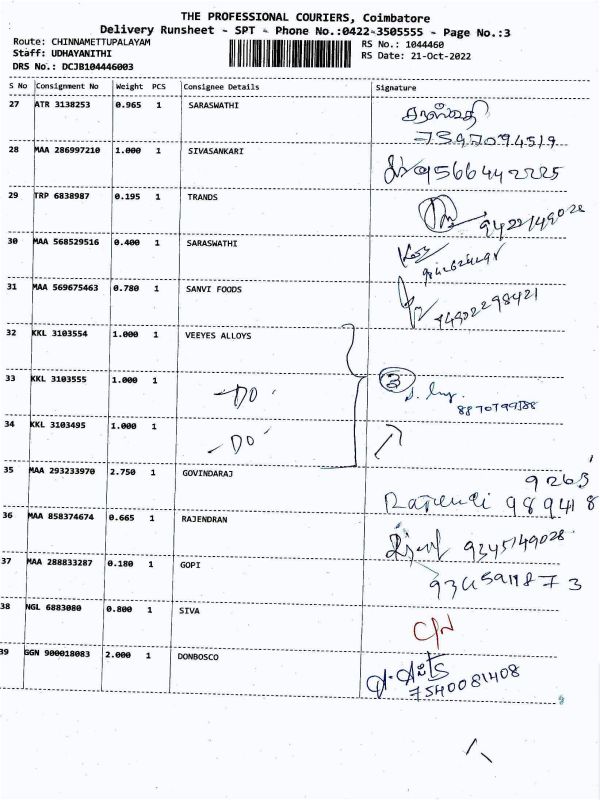 THE PROFESSIONAL COURIERS, Coimbatore
Delivery Runsheet - SPT - Phone No.:0422-3505555 - Page No.:3
Route: CHINNAMETTUPALAYAM RS No.: 1044460
Staff: UDHAYANITHI RS Date: 21-Oct-2022
DRS No.: DCJB104446003
S No Consignment No Weight PCS Consignee Details Signature
27 ATR 3138253 0.965 1 SARASWATHI சரஸ்வதி
7597094519
28 MAA 286997210 1.000 1 SIVASANKARI 9566442225
29 TRP 6838987 0.195 1 TRANDS
30 MAA 568529516 0.400 1 SARASWATHI
31 MAA 569675463 0.780 1 SANVI FOODS
32 KKL 3103554 1.000 1 VEEYES ALLOYS
33 KKL 3103555 1.000 1 -DO- 3
34 KKL 3103495 1.000 1 -DO-
35 MAA 293233970 2.750 1 GOVINDARAJ 9263
989418
36 MAA 858374674 0.665 1 RAJENDRAN 9345149028
37 MAA 288833287 0.180 1 GOPI
38 NGL 6883080 0.800 1 SIVA C/N
39 GGN 900018083 2.000 1 DONBOSCO
7540081408